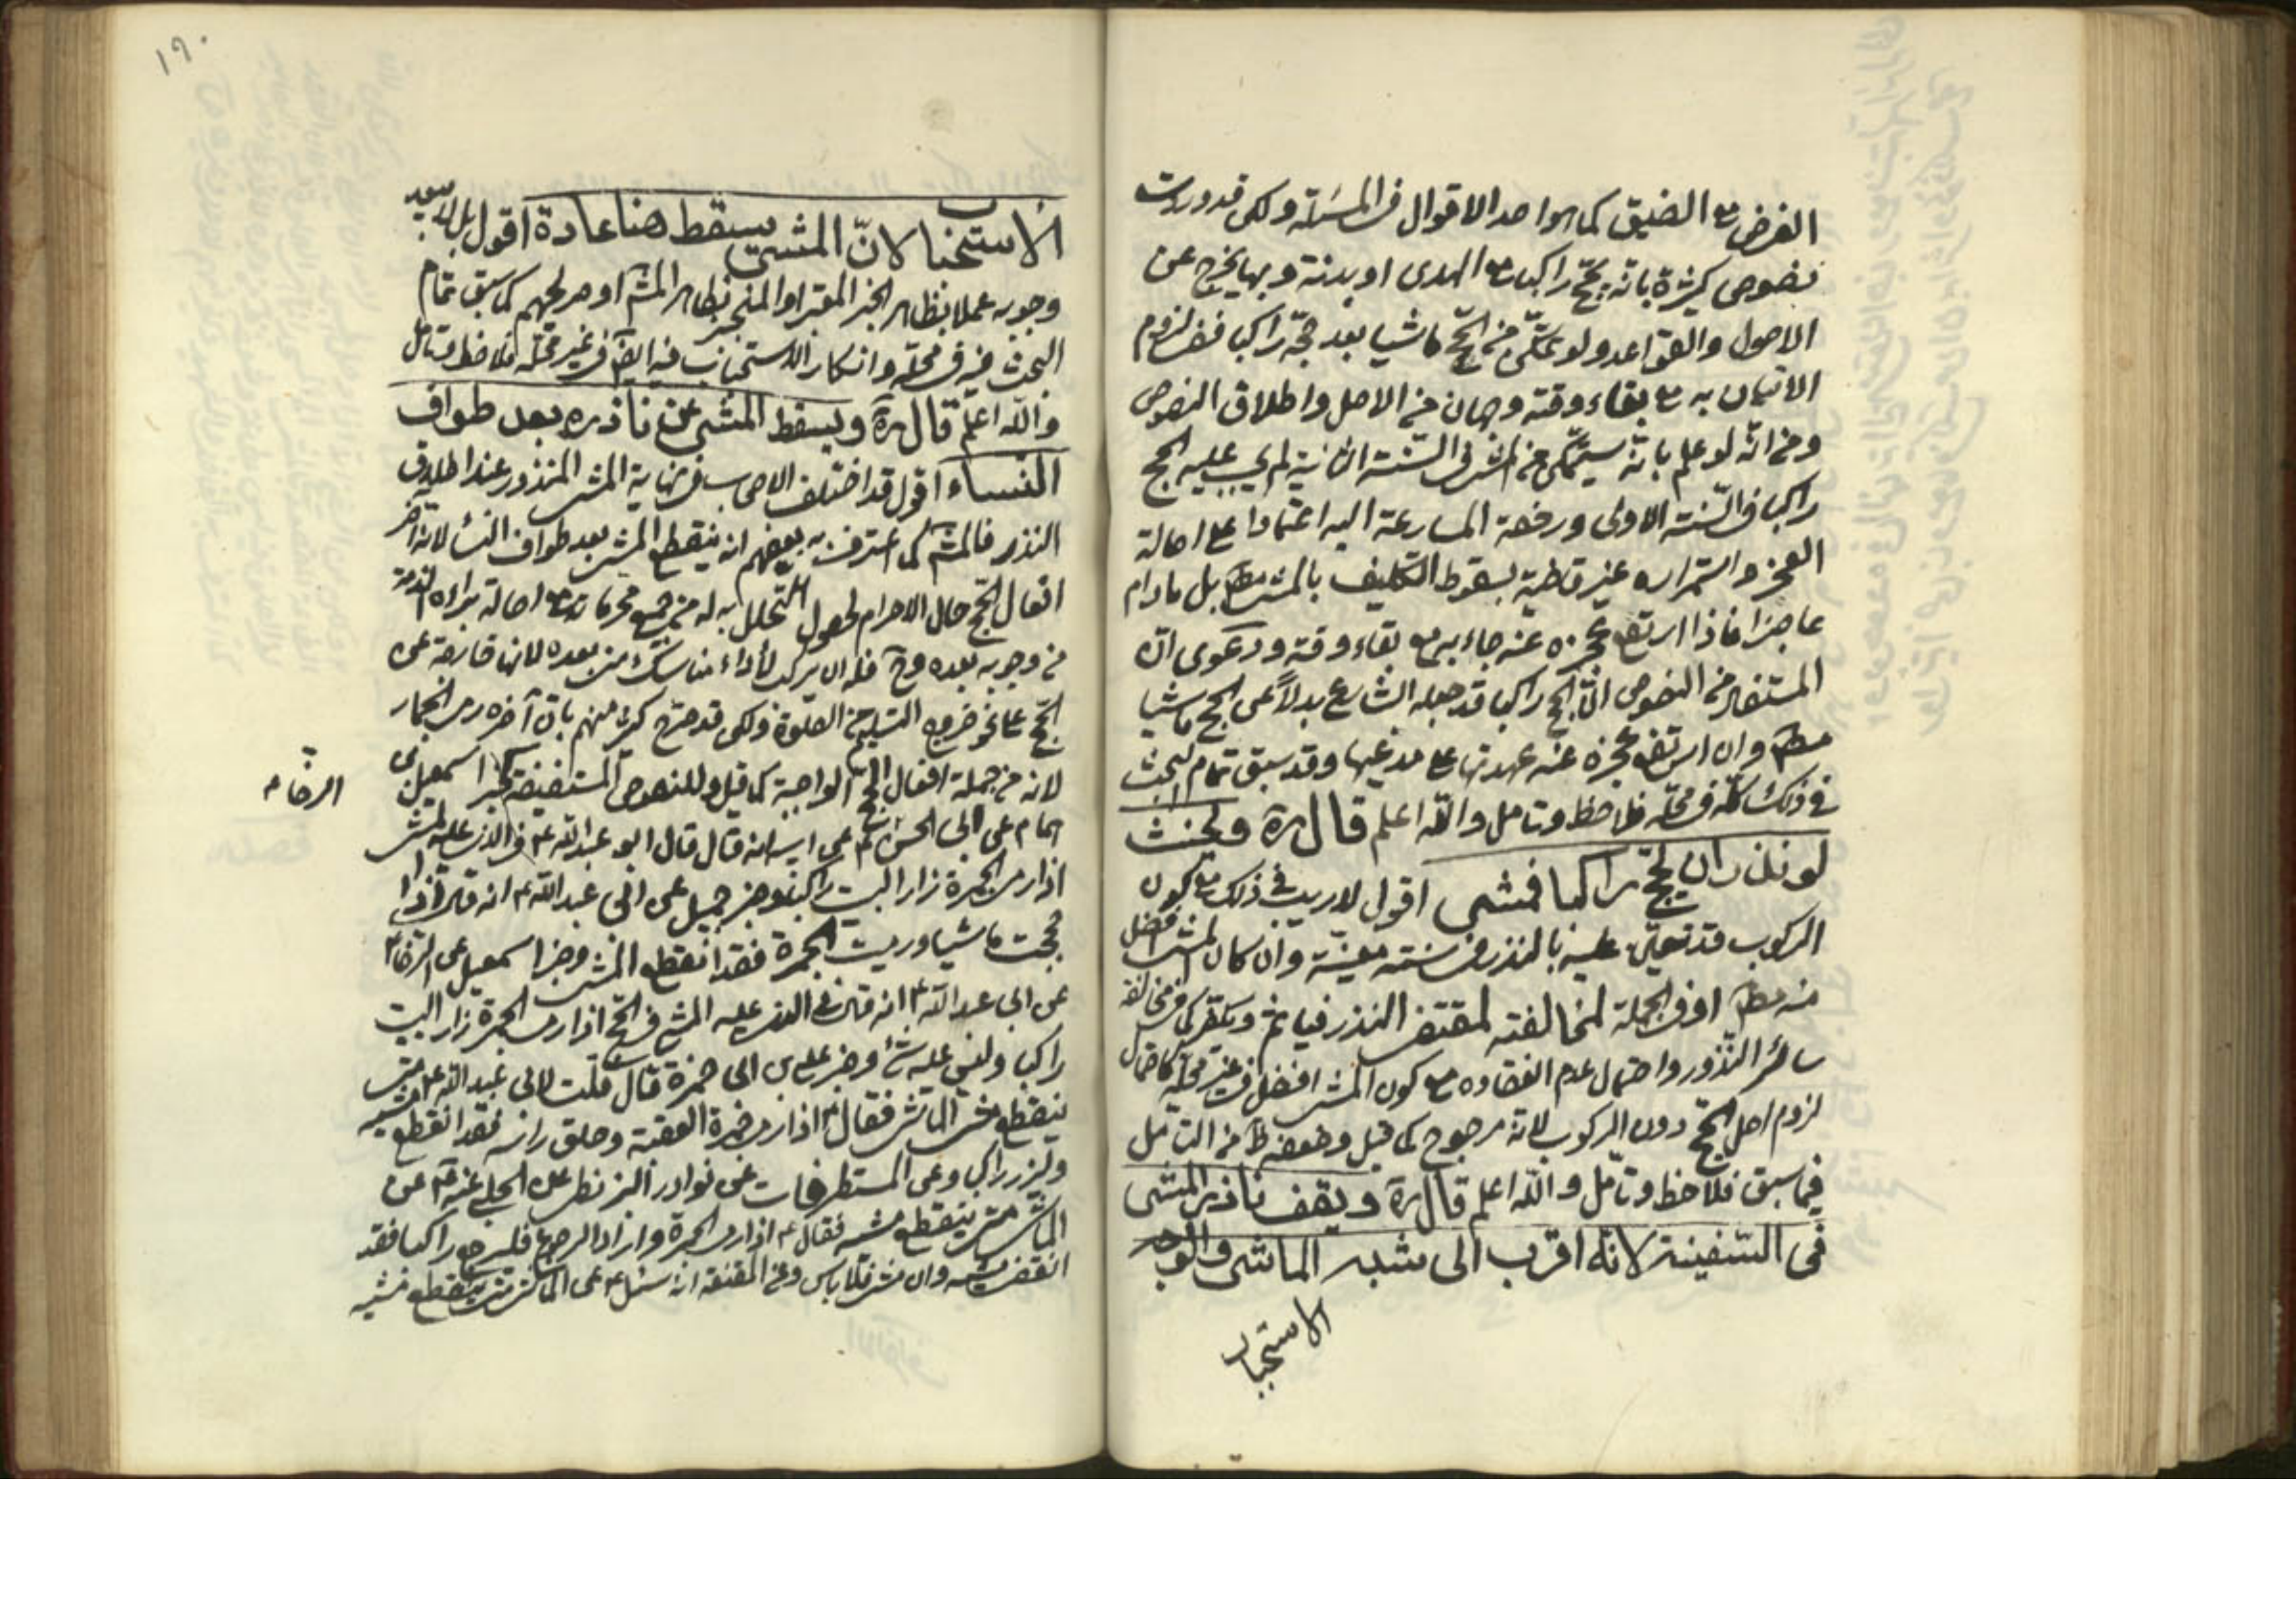 الفرض مع الضيق كما هو احد الاقوال في المسئلة ولكن قد وردت
نصوص كثيرة بانه يحج راكبا مع الهدى او بدنة وبها يخرج عن
الاصول والقواعد ولو تمكن من الحج ماشيا بعد حجه راكبا ففي لزوم
الاتيان به مع بقاء وقته وجهان من الاصل واطلاق النصوص
ومن انه لو علم بانه سيتمكن من المشى فى السنة الثانية لم يجب عليه الحج
راكبا فى السنة الاولى ورخصة المسارعة اليه اعتمادا على اصالة
العجز واستمراره غير قاضية بسقوط التكليف بالمشى مط بل مادام
عاجزا فاذا ارتفع عجزه عنه جاء به مع بقاء وقته ودعوى ان
المستفاد من النصوص ان الحج راكبا قد جعله الشارع بدلاً عن الحج ماشيا
مط وان ارتفع عجزه عنه عهدتها على مدعيها وقد سبق تمام البحث
فى ذلك كله فى محله فلاحظ وتامل والله اعلم قال ره ويحنث
لو نذر ان يحج راكبا فمشى اقول لا ريب فى ذلك مع كون
الركوب قد تعين عليه بالنذر فى سنته معينة وان كان المشى افضل
منه مط او فى الجملة لمخالفته لمقتضى النذر فياثم ويكفر كما فى مخالفة
سائر النذور واحتمال عدم انعقاده مع كون المشى افضل فى غير محله كاحتمال
لزوم اصل الحج دون الركوب لانه مرجوح كما قيل وضعفه ظ من التامل
فيما سبق فلاحظ وتامل والله اعلم قال ره ويقف ناذر المشى
فى السفينة لانه اقرب الى شبه الماشى والوجه
الاستحباب
١٩٠
الاستحباب لان المشى يسقط هنا عادة اقول بل لا يبعد
وجوبه عملا بظاهر الخبر المعتبر او المنجبر بظاهر المشهور او صريحهم كما سبق تمام
البحث فيه فى محله وانكار الاستحباب فيه ايضا فى غير محله فلاحظ وتامل
والله اعلم قال ره ويسقط المشى عن ناذره بعد طواف
النساء اقول قد اختلف الاصحاب فى نهاية المشى المنذور عند اطلاق
النذر فالمشهور كما اعترف به بعضهم انه ينقطع المشى بعد طواف النساء لانه آخر
افعال الحج حال الاحرام لحصول التحلل به له من جميع محرماته مع اصالة براءة الذمة
من وجوبه بعده وح فله ان يركب لأداء مناسك من بعده لانها خارجة عن
الحج على نحو خروج التسليم من الصلوة ولكن قد صرح كثير منهم بان آخره رمى الجمار
لانه من جملة افعال الحج الواجبة كما قيل وللنصوص المستفيضة كخبر اسمعيل بن
همام عن ابى الحسن ع عن ابيه انه قال قال ابو عبدالله ع فى الذى عليه المشى
اذا رمى الجمرة زار البيت راكبا وخبر جميل عن ابى عبدالله ع انه قال اذا
حججت ماشيا ورميت الجمرة فقد انقطع المشى وخبر اسمعيل عن الرضا ع
الرضا ع
عن ابى عبدالله ع انه قال فى الذى عليه المشى فى الحج اذا رمى الجمرة زار البيت
راكبا وليس عليه شئ وخبر على بن ابى حمزة قال قلت لابى عبدالله ع متى
ينقطع مشى الماشى فقال ع اذا رمى جمرة العقبة وحلق راسه فقد انقطع مشيه
وليزر راكبا وعن المستطرفات عن نوادر البزنطى عن الحلبى عنه ع عن
الماشى متى ينقطع مشيه فقال ع اذا رمى الجمرة واراد الرجوع فليرجع راكبا فقد
انقضى مشيه وان مشى فلا باس وعن المقنعة انه سئل ع عن الماشى متى ينقطع مشيه